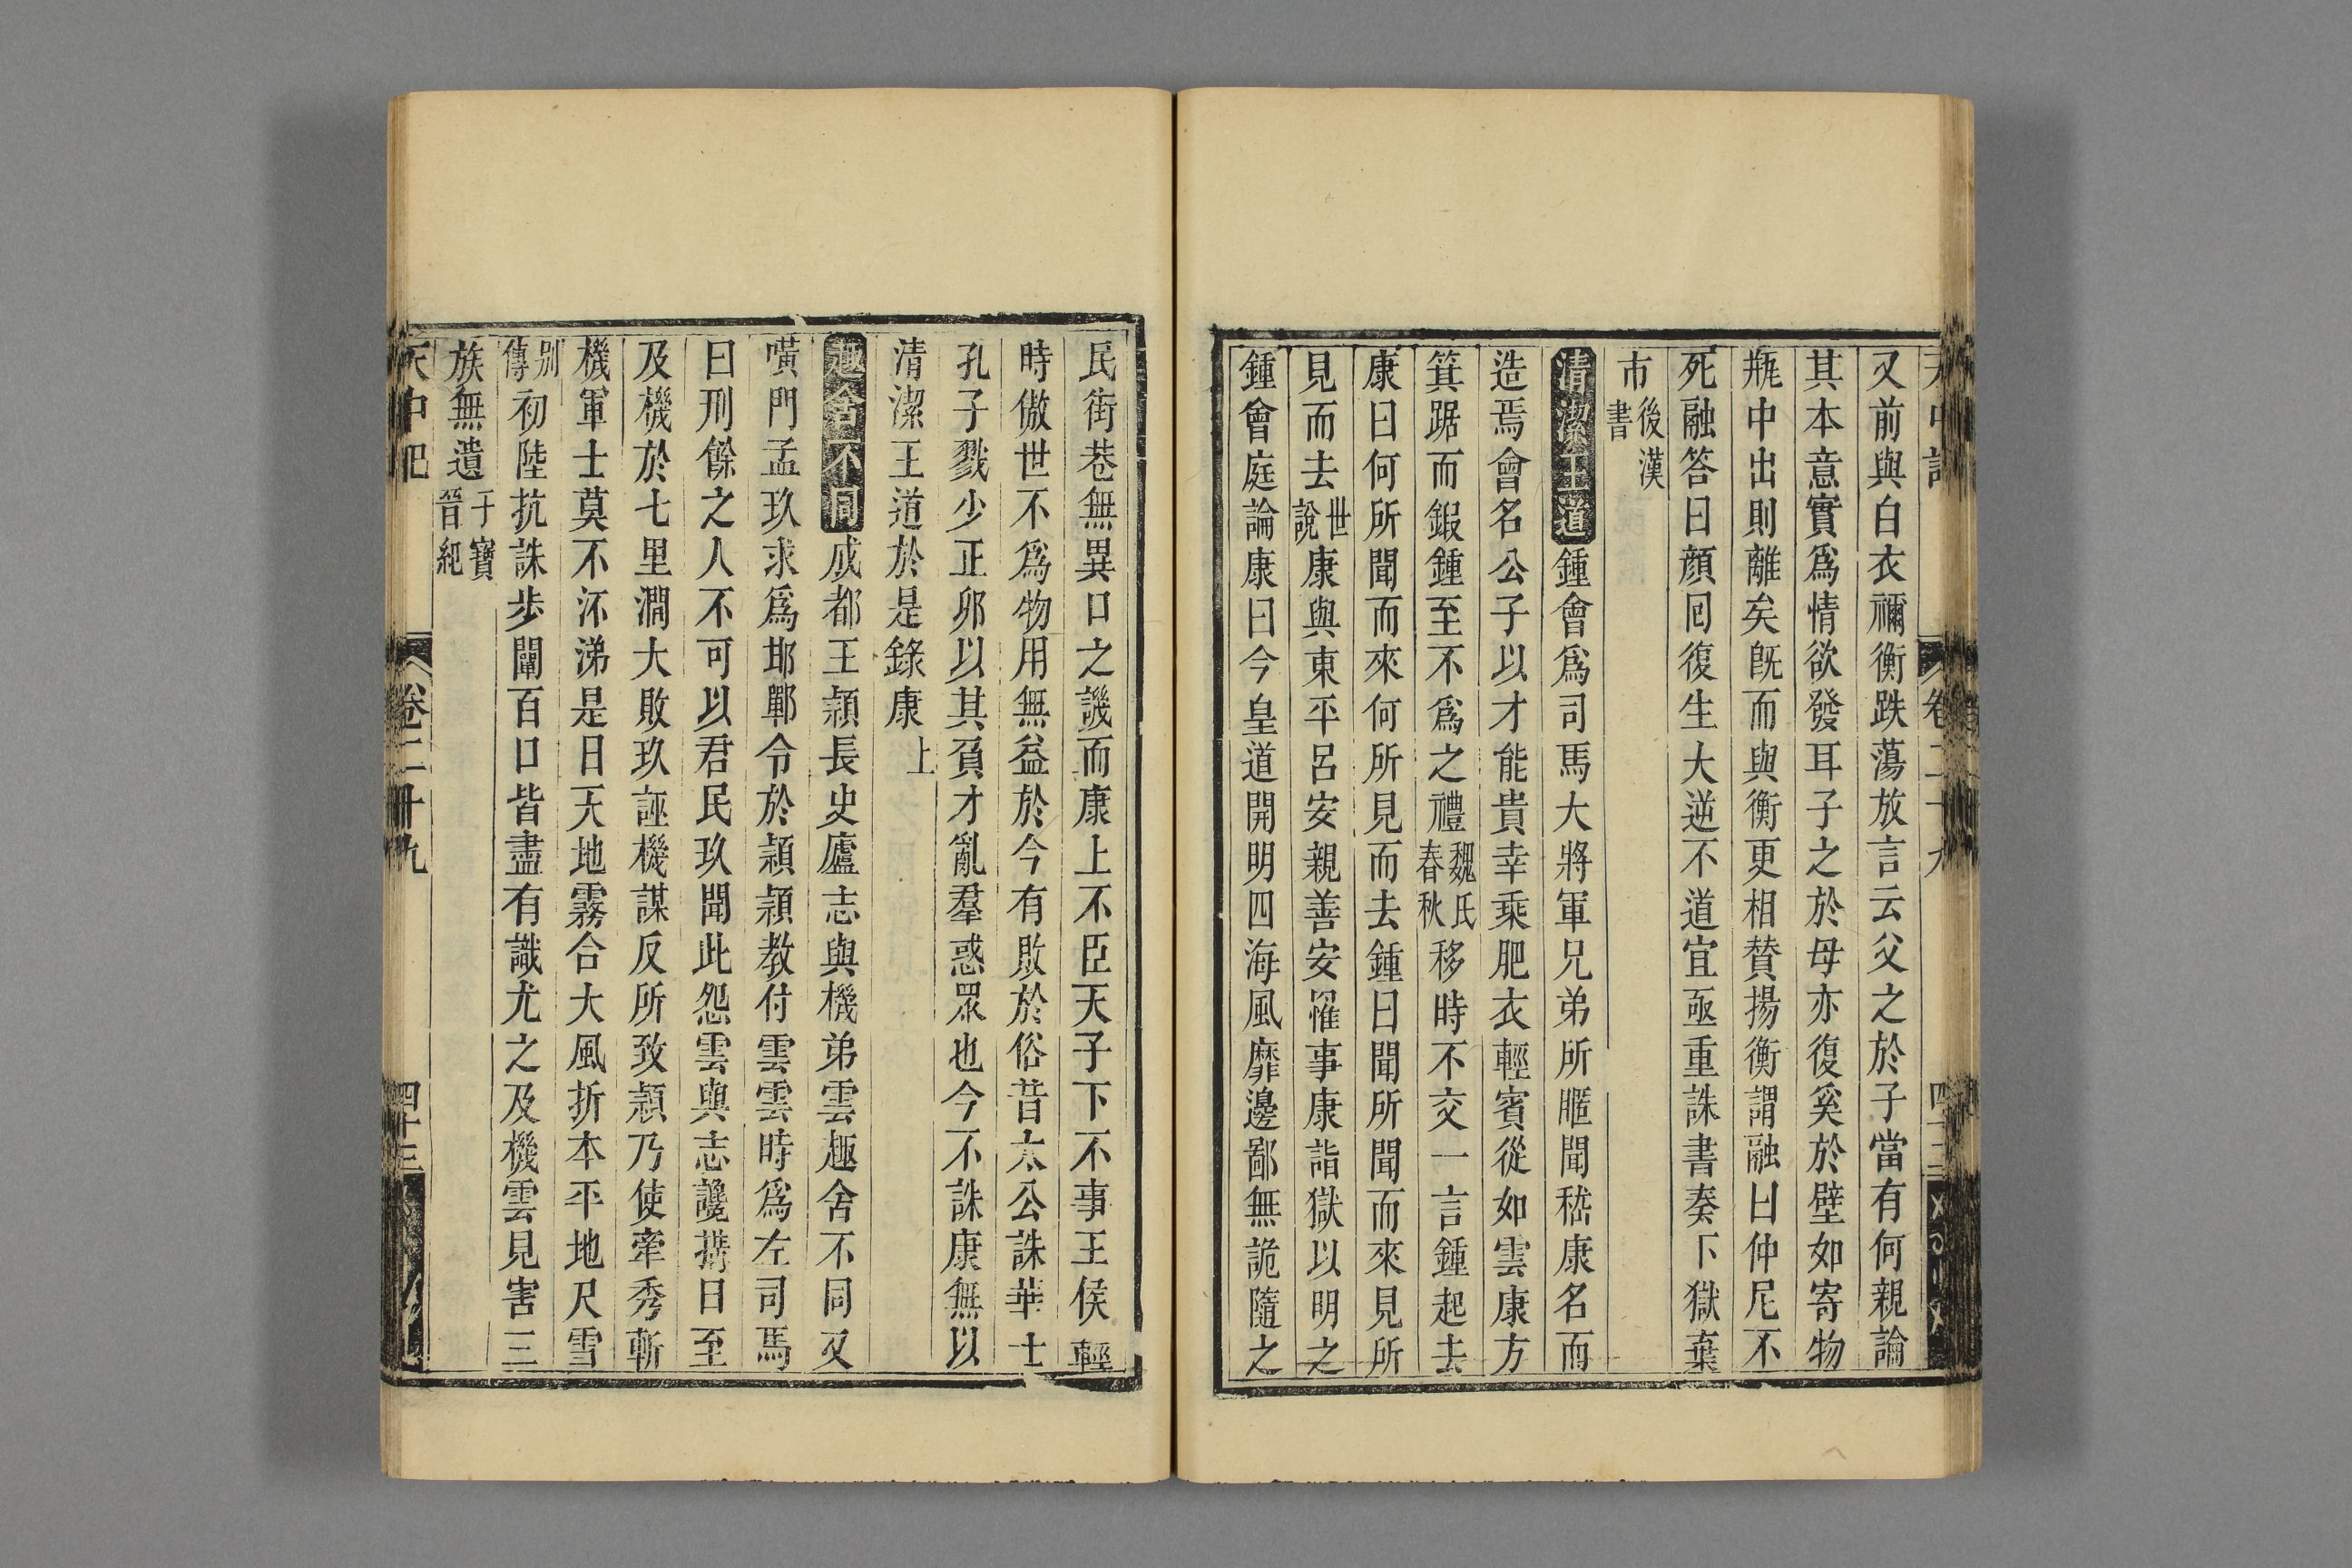 又前與白衣禰衡跌蕩放言云父之於子當有何親論
其本意實爲情欲發耳子之於母亦復奚於壁如寄物
瓶中出則離矣旣而與衡更相賛揚衡謂融曰仲尼不
死融答曰顔回復生大逆不道宜亟重誅書奏下獄葉
市後漢書
清潔王道鍾會爲司馬大將軍兄弟所暱聞嵇康名而
造焉會名公子以才能貴幸乘肥衣輕賓從如雲康方
箕踞而鍜鍾至不爲之禮魏氏春秋移時不交一言鍾起去
康曰何所聞而來何所見而去鍾曰聞所聞而來見所
見而去世說康與東平呂安親善安罹事康詣獄以明之
鍾會庭論康曰今皇道開明四海風靡邊鄙無詭隨之
民街巷無異口之譏而康上不臣天子下不事王侯輕
時傲世不爲物用無益於今有敗於俗昔太公誅華士
孔子戮少正卯以其負才亂羣惑眾也今不誅康無以
清潔王道於是錄康上
趣舍不同成都王潁長史廬志與機弟雲趣舍不同又
嘳門孟玖求爲邯鄲令於潁潁教付雲雲時爲左司馬
曰刑餘之人不可以君民玖聞此怨雲與志讒搆日至
及機於七里澗大敗玖誣機謀反所致潁乃使牽秀斬
機軍士莫不流涕是日天地霧合大風折本平地尺雪
别傳初陸抗誅步闡百口皆盡有識尤之及機雲見害三
族無遺于寶晉紀
天中記
卷二十九
四十三